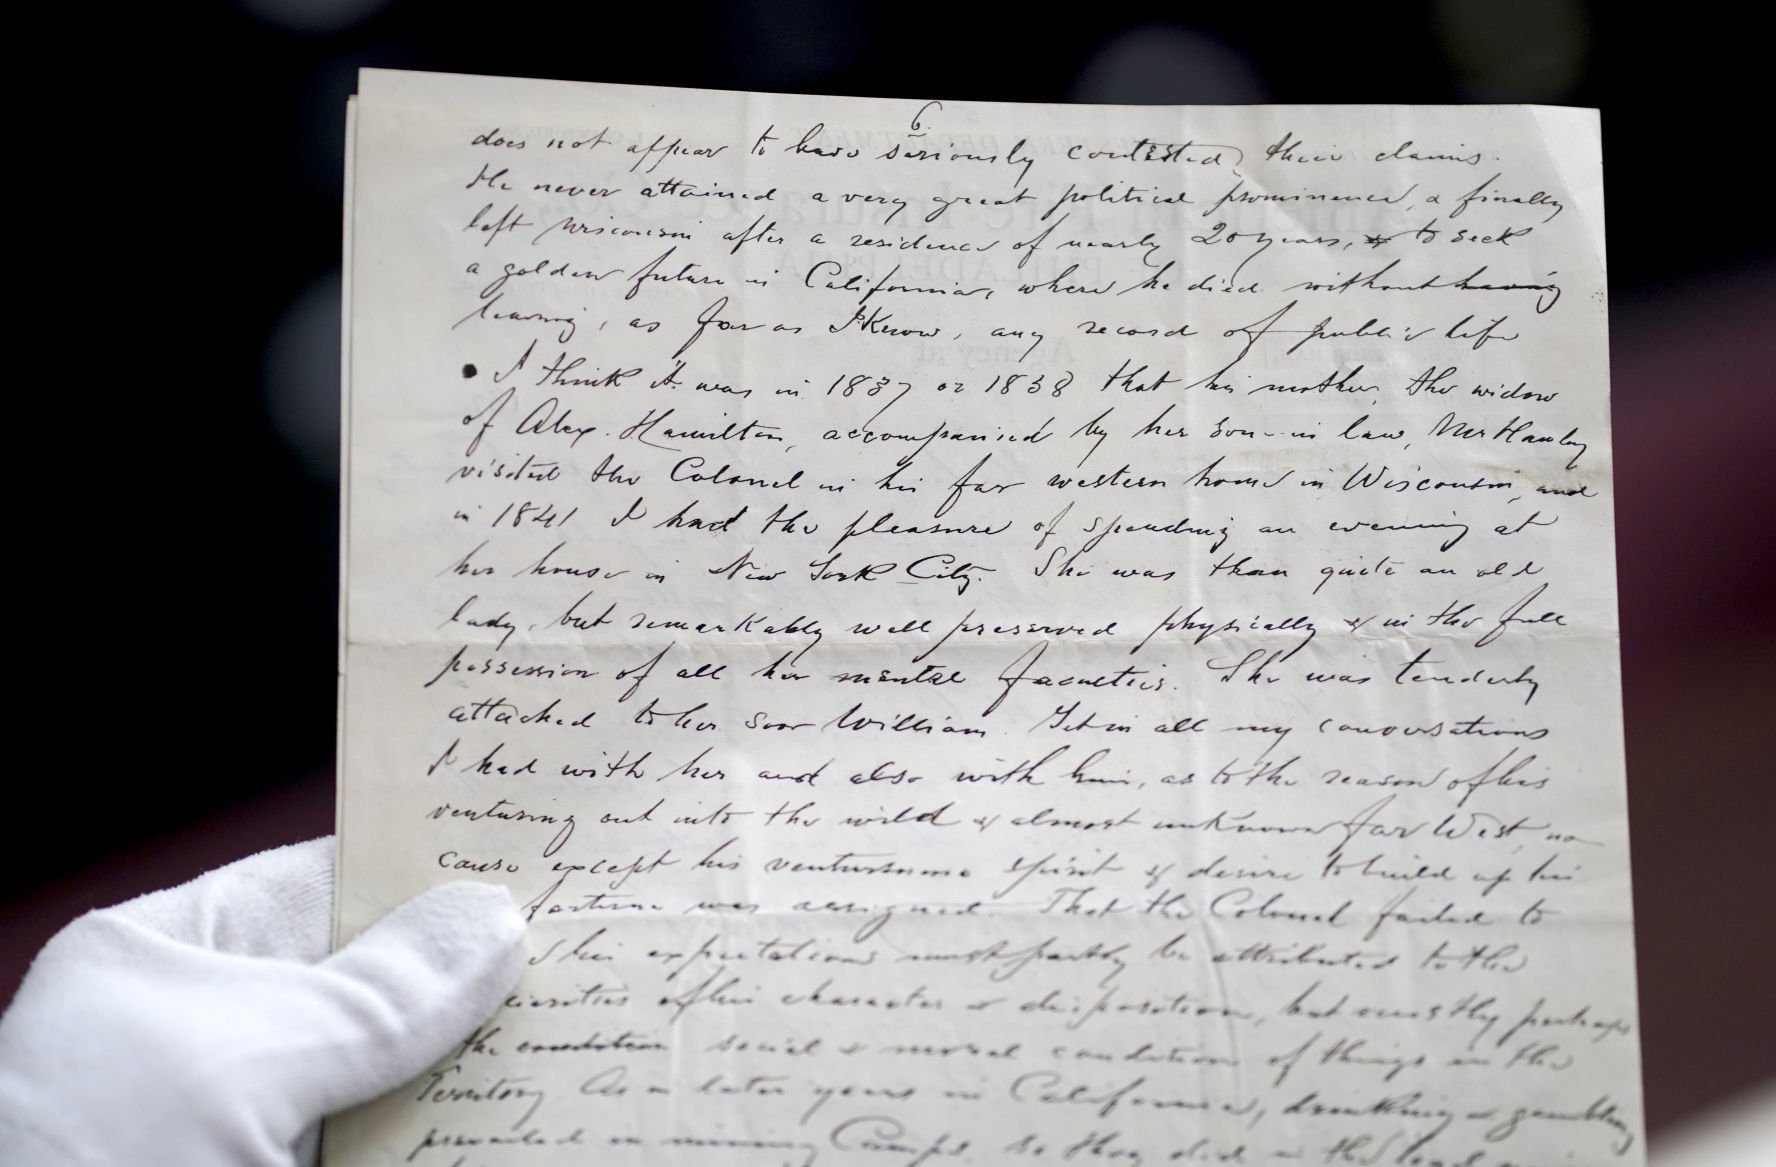 6.
does not appear to have seriously contested their claims.
He never attained a very great political prominence, & finally
left Wisconsin after a residence of nearly 20 years, & to seek
a golden future in California, where he died without having
leaving, as far as I Know, any record of public life
I think it was in 1837 or 1838 that his mother, the widow
of Alex. Hamilton, accompanied by her son-in law, Mr
visited the Colonel in his far western home in Wisconsin, and
in 1841 I had the pleasure of spending an evening at
her house in New York City. She was then quite an old
lady, but remarkably well preserved physically & in the full
possession of all her mental faculties. She was tenderly
attached to her son William. Yet in all my conversations
I had with her and also with him, as to the reason of his
venturing out into the wild & almost unknown far West, no
cause except his venturesome spirit & desire to build up his
fortune was assigned. That the Colonel failed to
his expectations must partly be attributed to the
of his character & disposition, but mostly perhaps
the condition social & moral condition of things in the
Territory As in later years in California, drinking & gambling
prevailed in mining Camps, so they did in the lead